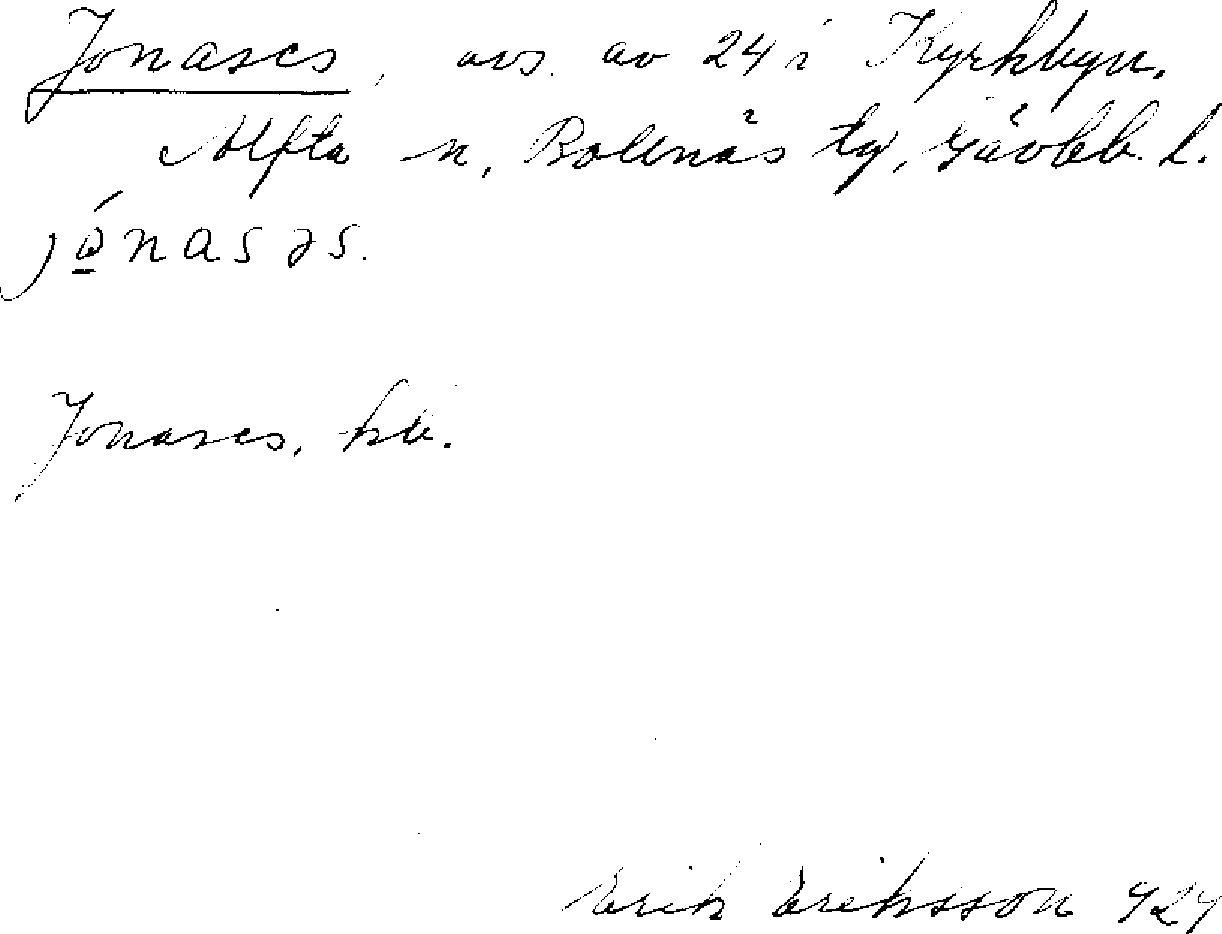 Jonases, avs. av 24 i Kyrkbyn.
Alfta sn, Bollnäs tg, Gävleb. l.
jó̲nasəs.
Jonases, hb.
Erik Eriksson 424